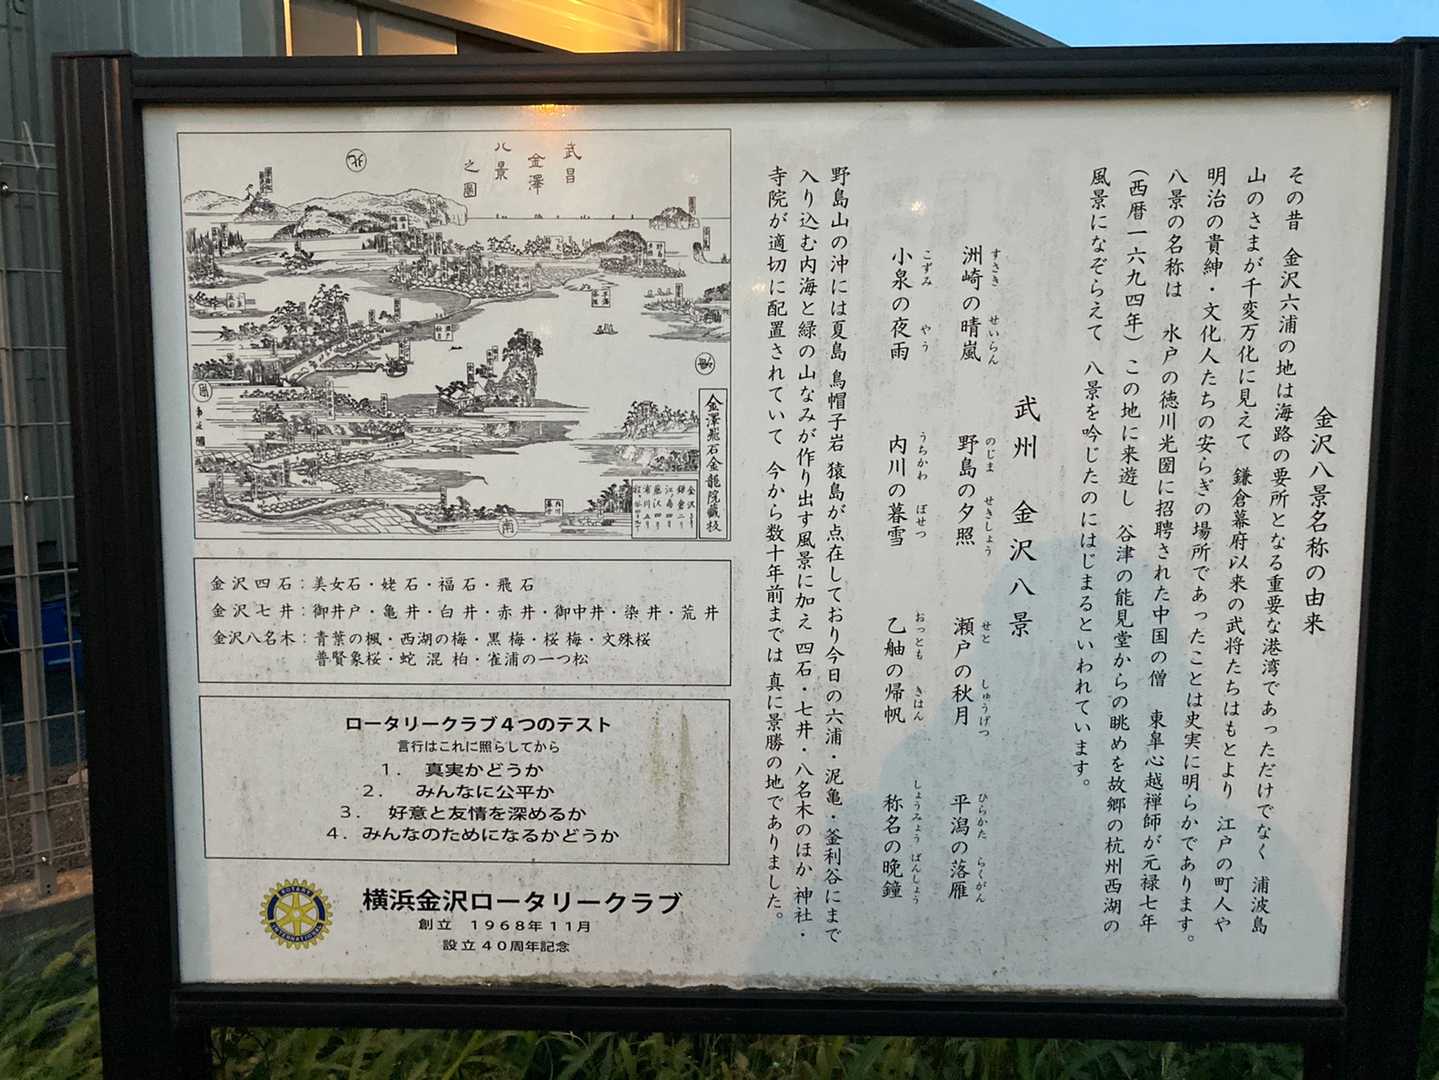 金沢八景名称の由来
その昔 金沢六浦の地は海路の要所となる重要な港湾であっただけでなく 浦波島
山のさまが千変万化に見えて 鎌倉幕府以来の武将たちはもとより 江戸の町人や
明治の貴紳・文化人たちの安らぎの場所であったことは史実に明らかであります。
八景の名称は 水戸の徳川光圀に招聘された中国の僧 東皐心越禅師が元禄七年
(西暦一六九四年)この地に来遊し 谷津の能見堂からの眺めを故郷の杭州西湖の
風景になぞらえて 八景を吟じたのにはじまるといわれています。
武州 金沢八景
すさき せいらん のじま せきしょう せと しゅうげつ ひらかた らくがん
洲崎の晴嵐 野島の夕照 瀬戸の秋月 平潟の落雁
こずみ やう うちかわ ぼせつ おっとも きはん しょうみょう ばんしょう
小泉の夜雨 内川の暮雪 乙舳の帰帆 称名の晩鐘
野島山の沖には夏島 烏帽子岩 猿島が点在しており今日の六浦・泥亀・釜利谷にまで
入り込む内海と緑の山なみが作り出す風景に加え 四石・七井・八名木のほか 神社・
寺院が適切に配置されていて 今から数十年前までは 真に景勝の地でありました。
武昌
金澤
八景
之圖
北
南
金澤飛石金龍院蔵板
金沢四石：美女石・姥石・福石・飛石
金沢七井：御井戸・亀井・白井・赤井・御中井・染井・荒井
金沢八名木：青葉の楓・西湖の梅・黒梅・桜梅・文殊桜
普賢象桜・蛇混柏・雀浦の一つ松
ロータリークラブ4つのテスト
言行はこれに照らしてから
1. 真実かどうか
2. みんなに公平か
3. 好意と友情を深めるか
4. みんなのためになるかどうか
ROTARY
INTERNATIONAL
横浜金沢ロータリークラブ
創立 1968年11月
設立40周年記念